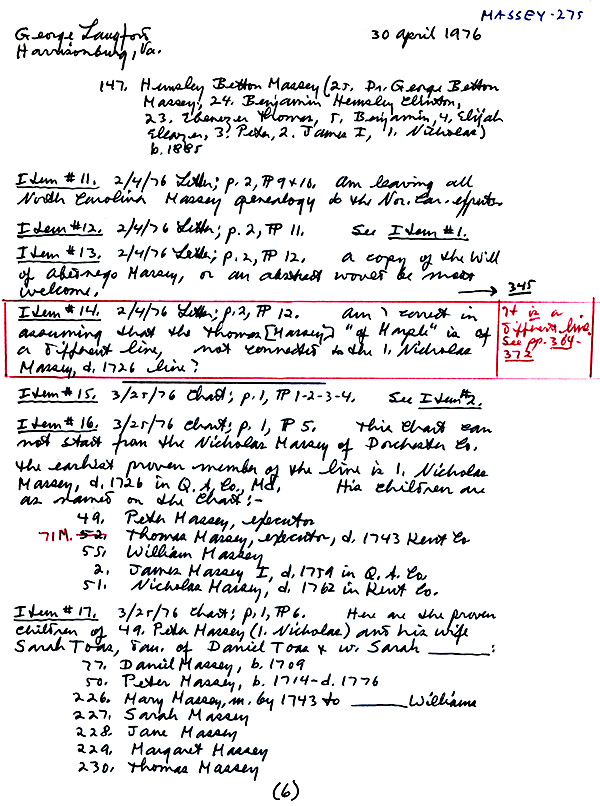 MASSEY-275
George Langford
30 April 1976
Harrisonburg, Va.
147. Hemsley Betton Massey (25. Dr. George Betton
Massey, 24. Benjamin Hemsley Clinton,
23. Ebenezer Thomas, 5. Benjamin, 4. Elijah
Eleazer, 3. Peter, 2. James I, 1. Nicholas)
b. 1885
Item #11. 2/4/76 Letter; p. 2, ¶ 9 & 10. Am leaving all
North Carolina Massey genealogy to the Nor. Car. experts.
Item #12. 2/4/76 Letter; p. 2, ¶ 11. See Item #1.
Item #13. 2/4/76 Letter; p. 2, ¶ 12. a copy of the Will
of Abernego Massey, or an abstract would be most
welcome. → 345
Item #14. 2/4/76 Letter; p. 2, ¶ 12. Am I correct in
assuming that the Thomas [Massey] "of Marple" is of
a different line, not connected to the 1. Nicholas
Massey, d. 1726 line?
It is a
different line.
See pp. 364-
372
Item #15. 3/25/76 Chart; p. 1, ¶ 1-2-3-4. See Item #2.
Item #16. 3/25/76 Chart; p. 1, ¶ 5. This Chart can
not start from the Nicholas Massey of Dorchester Co.
The earliest proven member of the line is 1. Nicholas
Massey, d. 1726 in Q. A. Co., Md. His children are
as named on the Chart:-
49. Peter Massey, executor
71M. 52. Thomas Massey, executor, d. 1743 Kent Co
55. William Massey
2. James Massey I, d. 1759 in Q. A. Co.
51. Nicholas Massey, d. 1762 in Kent Co.
Item #17. 3/25/76 Chart; p. 1, ¶ 6. Here are the proven
children of 49. Peter Massey (1. Nicholas) and his wife
Sarah Toas, dau. of Daniel Toas & w. Sarah ______:
77. Daniel Massey, b. 1709
50. Peter Massey, b. 1714-d. 1776
226. Mary Massey, m. by 1743 to ______ Williams
227. Sarah Massey
228. Jane Massey
229. Margaret Massey
230. Thomas Massey
(6)